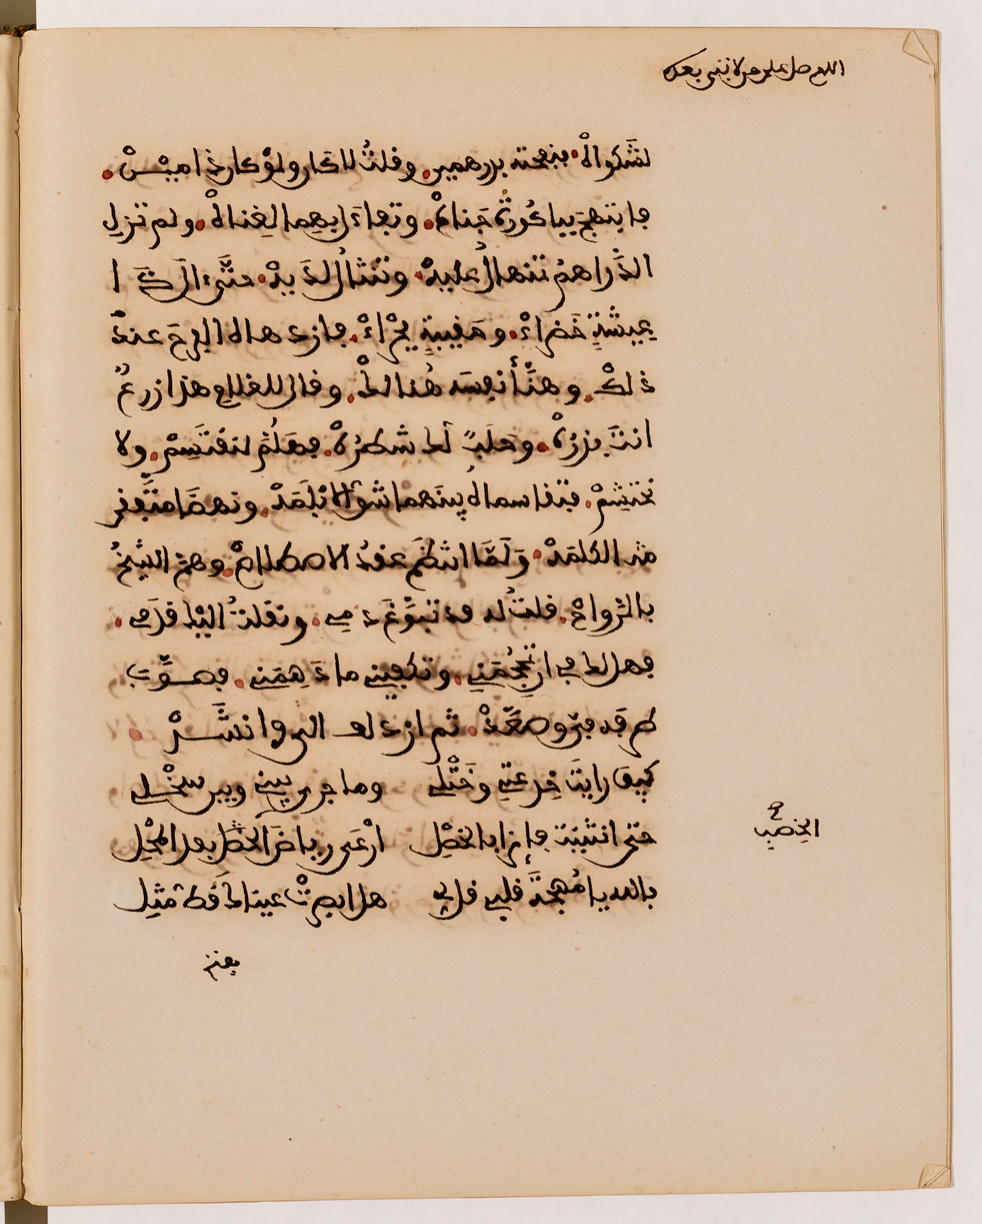 اللهم صل على من لا نبي بعده
لشكواهْ. فنفحته بدرهمين. وقلتُ لا كانا ولوْ كان ذا ميْنْ.
فابتهجَ بباكُورةِ جَناهْ. وتفاءَل بهما لغِناهْ. ولم تزلِ
الدَّراهمُ تنهالُ عليهْ. وتنثالُ لدَيهْ. حتَّى ألفَ ذا
عِيشةٍ خَضراءْ. وحَقيبةٍ بجْراءْ. فازدهاه الفرحُ عندَ
ذلكْ. وهنَّأ نفسَه هُنالكْ. وقال للغلامِ هذا ريعٌ
أنتَ بزرُهْ. وحَلَبٌ لك شطرُهْ. فهَلُمَّ لنقتَسِمْ. ولا
نحتشِمْ. فتقاسماهُ بينَهما شقَّ الأبلَمَهْ. ونهضَا متَّفِقَي
الكلمَهْ. ولَمَّا انتظَمَ عقدُ الاصطلاحْ. وهمَّ الشيْخُ
بالرَّواحْ. قلتُ له قد تبوَّغَ دمي. ونقلتُ إليْك قدَمي.
فهل لك في أن تحجُمَني. وتكفِيَني ما دَهِمَني. فصوَّب
طرفه فيَّ وصعَّدْ. ثم ازدلف إلي وأنشَدْ.
كيف رايتَ خِدعتي وخَتْلي وما جرى بيني وبين سخْلي
حتى انثنيتَ فائزا بالخصْلِ أرْعَى رياضَ الخط بعد المحْلِ
الخصب
بالله يا مُهجةَ قلبي قل لي هل ابصرتْ عيناك قط مثلي